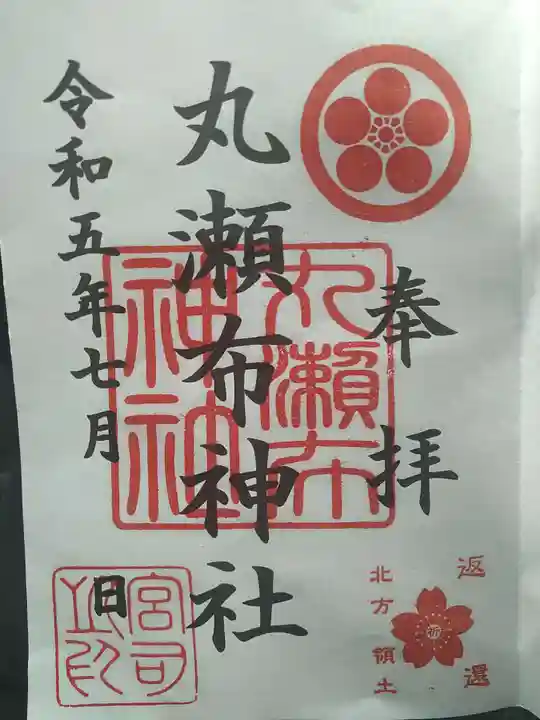 奉拝
丸瀬布神社
丸瀬布
神社
令和五年七月
日
宮司
之印
返還
北方領土
祈